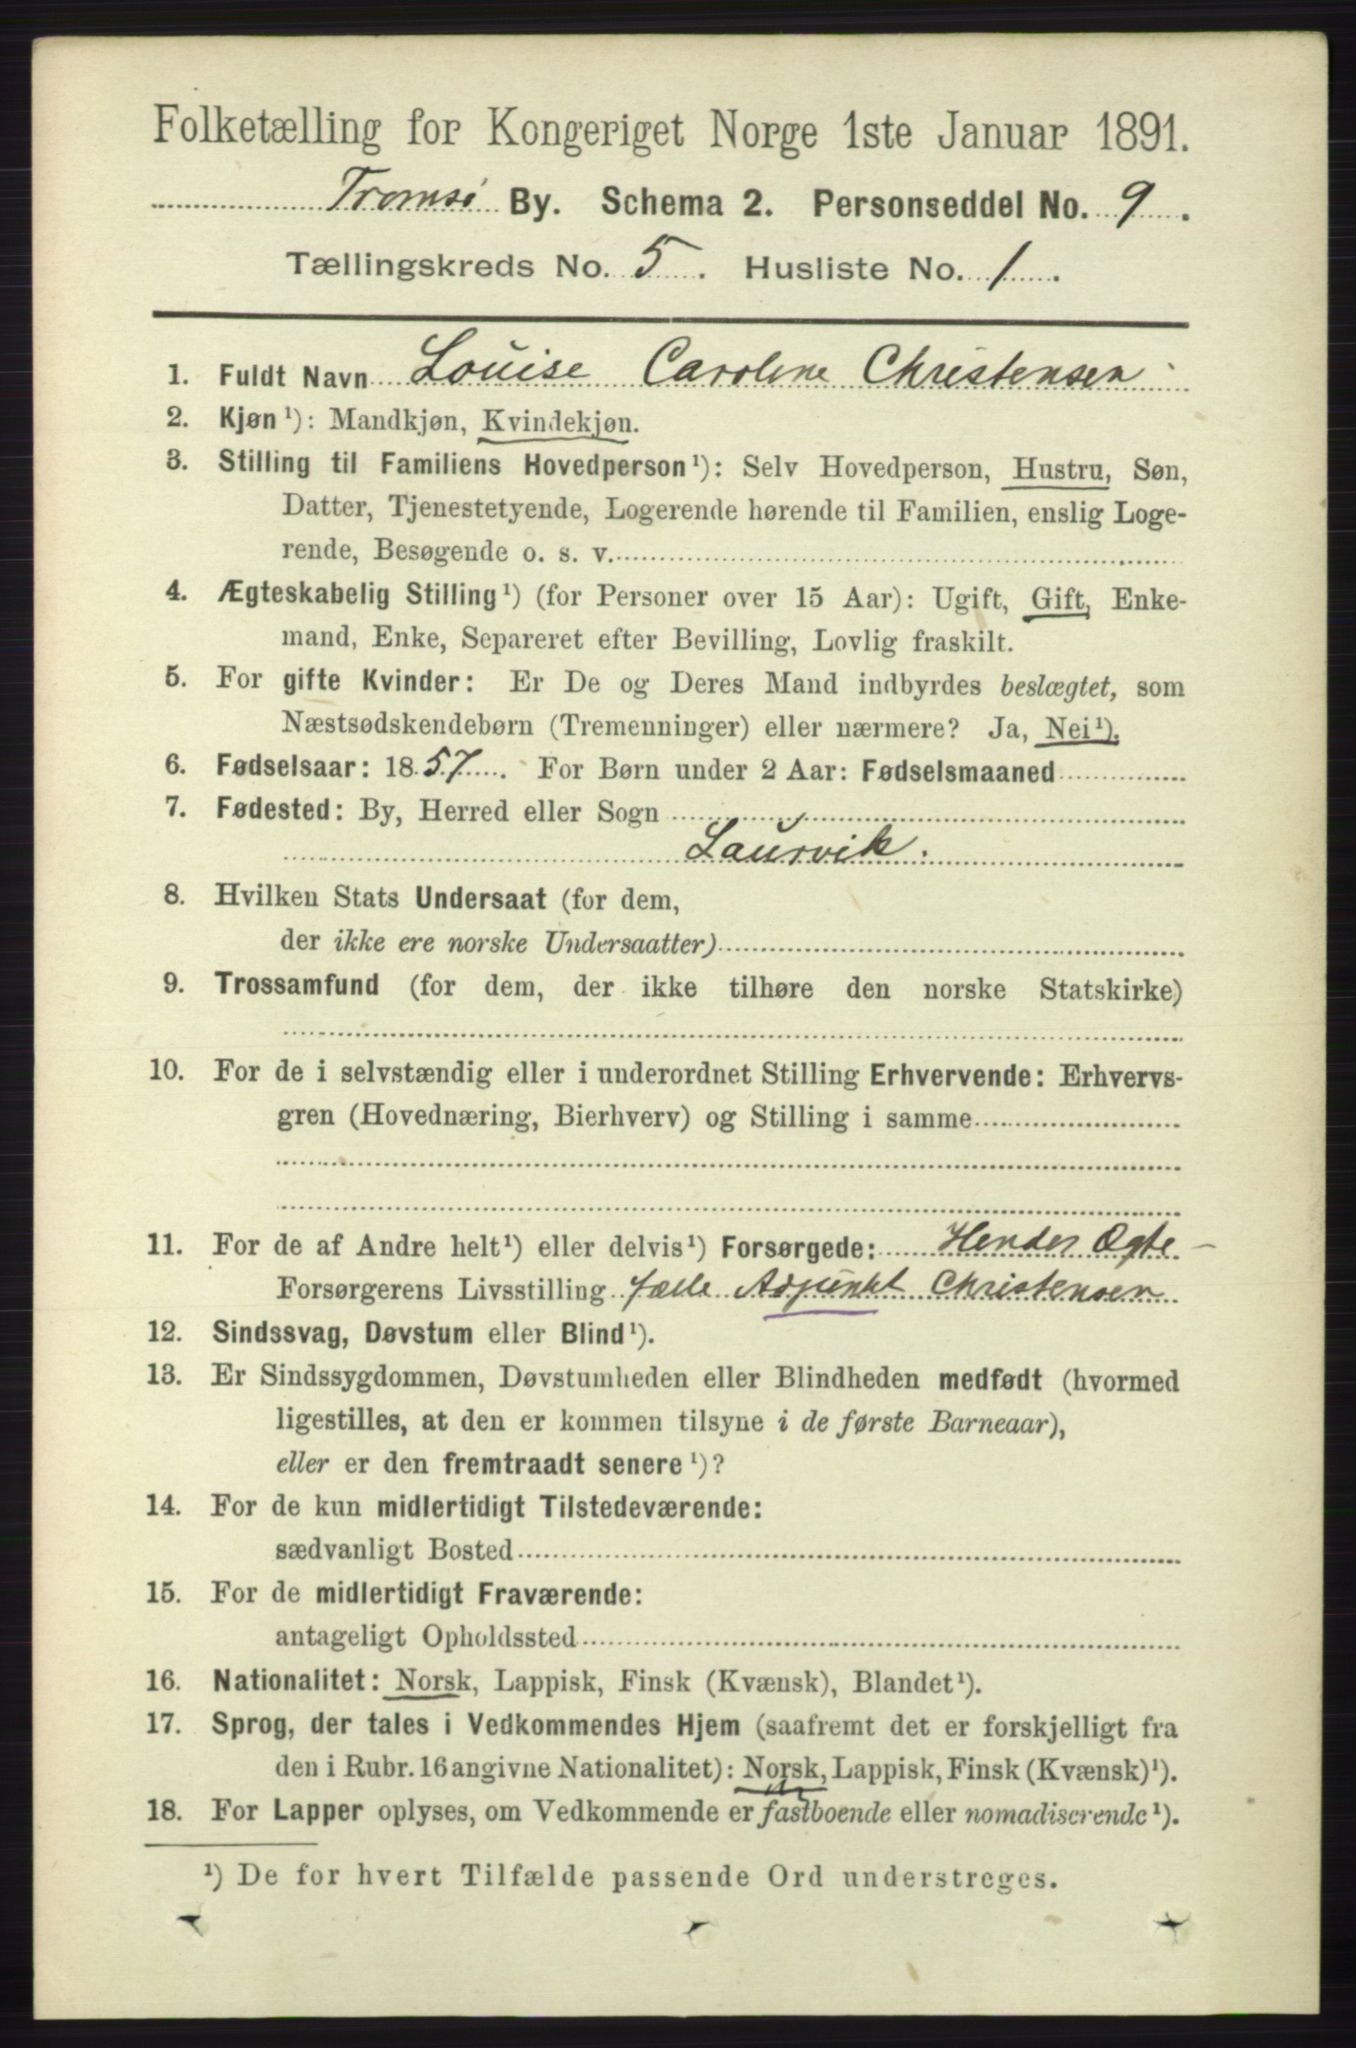 Folketælling for Kongeriget Norge 1ste Januar 1891.
Tromsø By. Schema 2. Personseddel No. 9.
Tællingskreds No. 5. Husliste No. 1.
1. Fuldt Navn Louise Caroline Christensen
2. Kjøn¹): Mandkjøn, Kvindekjøn.
3. Stilling til Familiens Hovedperson¹): Selv Hovedperson, Hustru, Søn,
Datter, Tjenestetyende, Logerende hørende til Familien, enslig Loge-
rende, Besøgende o. s. v.
4. Ægteskabelig Stilling¹) (for Personer over 15 Aar): Ugift, Gift, Enke-
mand, Enke, Separeret efter Bevilling, Lovlig fraskilt.
5. For gifte Kvinder: Er De og Deres Mand indbyrdes beslægtet, som
Næstsødskendebørn (Tremenninger) eller nærmere? Ja, Nei¹).
6. Fødselsaar: 1857. For Børn under 2 Aar: Fødselsmaaned
7. Fødested: By, Herred eller Sogn
Laurvik.
8. Hvilken Stats Undersaat (for dem,
der ikke ere norske Undersaatter)
9. Trossamfund (for dem, der ikke tilhøre den norske Statskirke)
10. For de i selvstændig eller i underordnet Stilling Erhvervende: Erhvervs-
gren (Hovednæring, Bierhverv) og Stilling i samme
11. For de af Andre helt¹) eller delvis¹) Forsørgede: Hendes Ægte-
Forsørgerens Livsstilling fælle Adjunkt Christensen
12. Sindssvag, Døvstum eller Blind¹).
13. Er Sindssygdommen, Døvstumheden eller Blindheden medfødt (hvormed
ligestilles, at den er kommen tilsyne i de første Barneaar),
eller er den fremtraadt senere¹)?
14. For de kun midlertidigt Tilstedeværende:
sædvanligt Bosted
15. For de midlertidigt Fraværende:
antageligt Opholdssted
16. Nationalitet: Norsk, Lappisk, Finsk (Kvænsk), Blandet¹).
17. Sprog, der tales i Vedkommendes Hjem (saafremt det er forskjelligt fra
den i Rubr. 16 angivne Nationalitet): Norsk, Lappisk, Finsk (Kvænsk)¹).
18. For Lapper oplyses, om Vedkommende er fastboende eller nomadiserende¹).
¹) De for hvert Tilfælde passende Ord understreges.